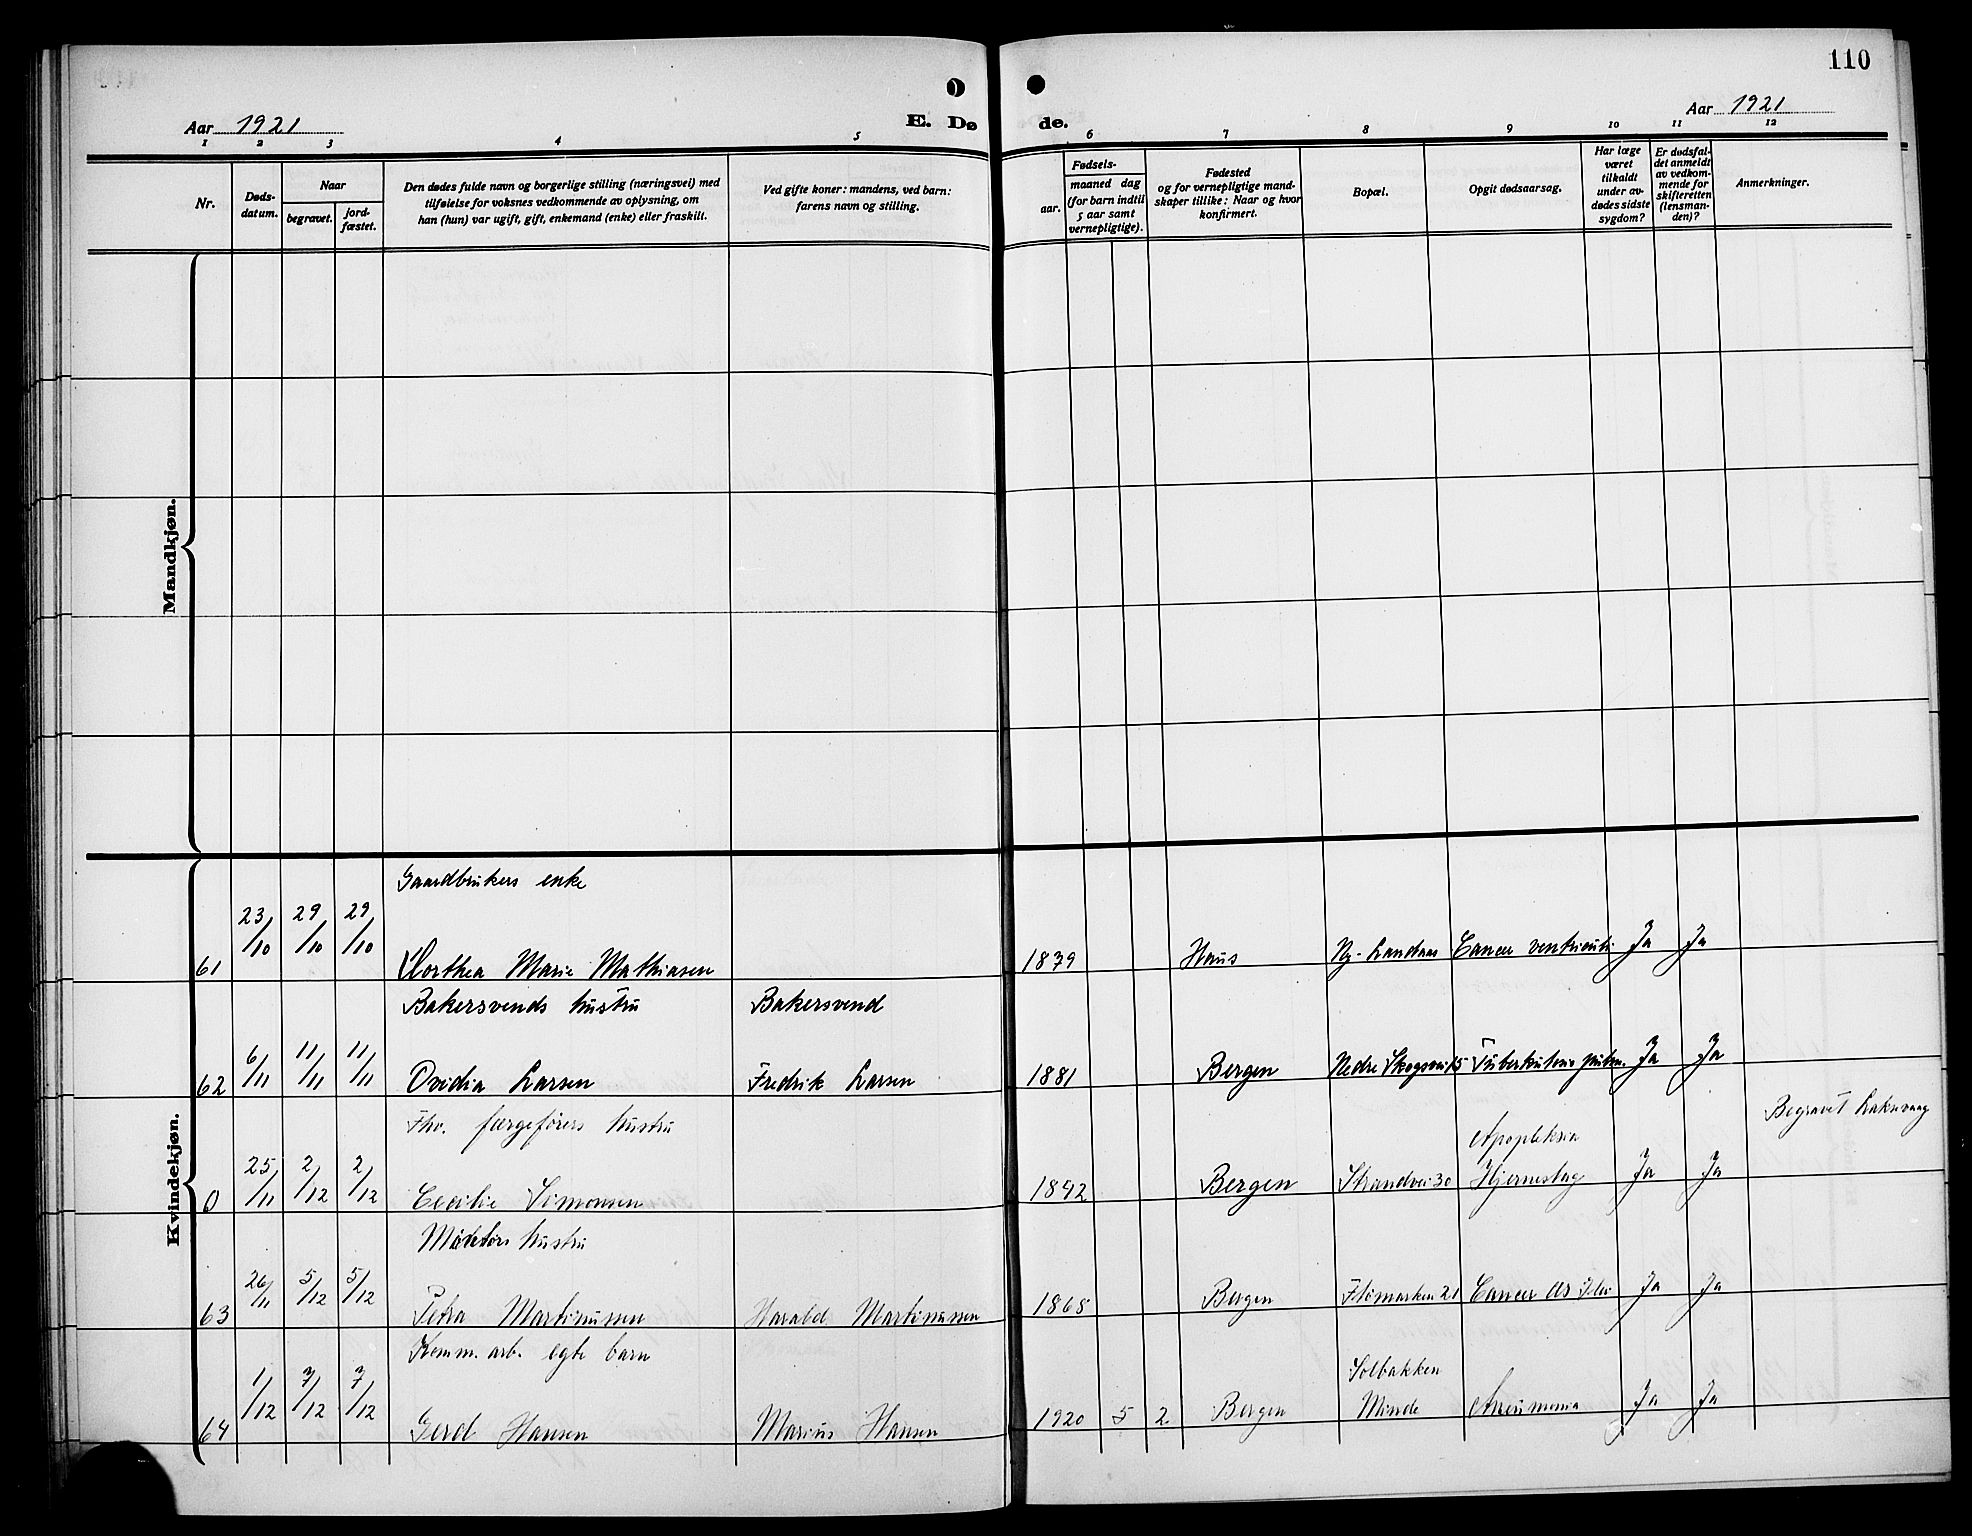 110
Aar 1921
E. Dø
de.
Aar 1921
1 2 3 4 5
6 7 8 9 10 11 12
Nr.
Døds-
datum.
Naar
begravet.
jord-
fæstet.
Den dødes fulde navn og borgerlige stilling (næringsvei) med
tilføielse for voksnes vedkommende av oplysning, om
han (hun) var ugift, gift, enkemand (enke) eller fraskilt.
Ved gifte koner: mandens, ved barn:
farens navn og stilling.
Fødsels-
aar.
maaned dag
(for barn indtil
5 aar samt
vernepligtige).
Fødested
og for vernepligtige mand-
skaper tillike: Naar og hvor
konfirmert.
Bopæl.
Opgit dødsaarsag.
Har læge
været
tilkaldt
under av-
dødes sidste
sygdom?
Er dødsfal-
det anmeldt
av vedkom-
mende for
skifteretten
(lensman-
den)?
Anmerkninger.
Mandkjøn.
Kvindekjøn.
Gaardbrukers enke
61 23/10 29/10 29/10 Dorthea Marie Mathiasen 1839 Haus Ny-Landaas Cancer ventriculi Ja Ja
Bakersvends hustru Bakersvend
62 6/11 11/11 11/11 Ovidia Larsen Fredrik Larsen 1881 Bergen Nedre Skogsvei 15 Tuberkulosis pulm. Ja Ja
Fhv. færgeførers hustru Apopleksia Begravet Laksevaag
0 25/11 2/12 2/12 Cecilie Simonsen 1842 Bergen Strandvei 30 Hjerneslag Ja Ja
hustru
63 26/11 5/12 5/12 Petra Martinussen Harald Martinussen 1865 Bergen Flømarken 21 Cancer Ja Ja
Komm. arb. egte barn Solbakken
64 1/12 7/12 7/12 Gerd Hansen Marius Hansen 1920 5 2 Bergen Minde Pneumonia Ja Ja